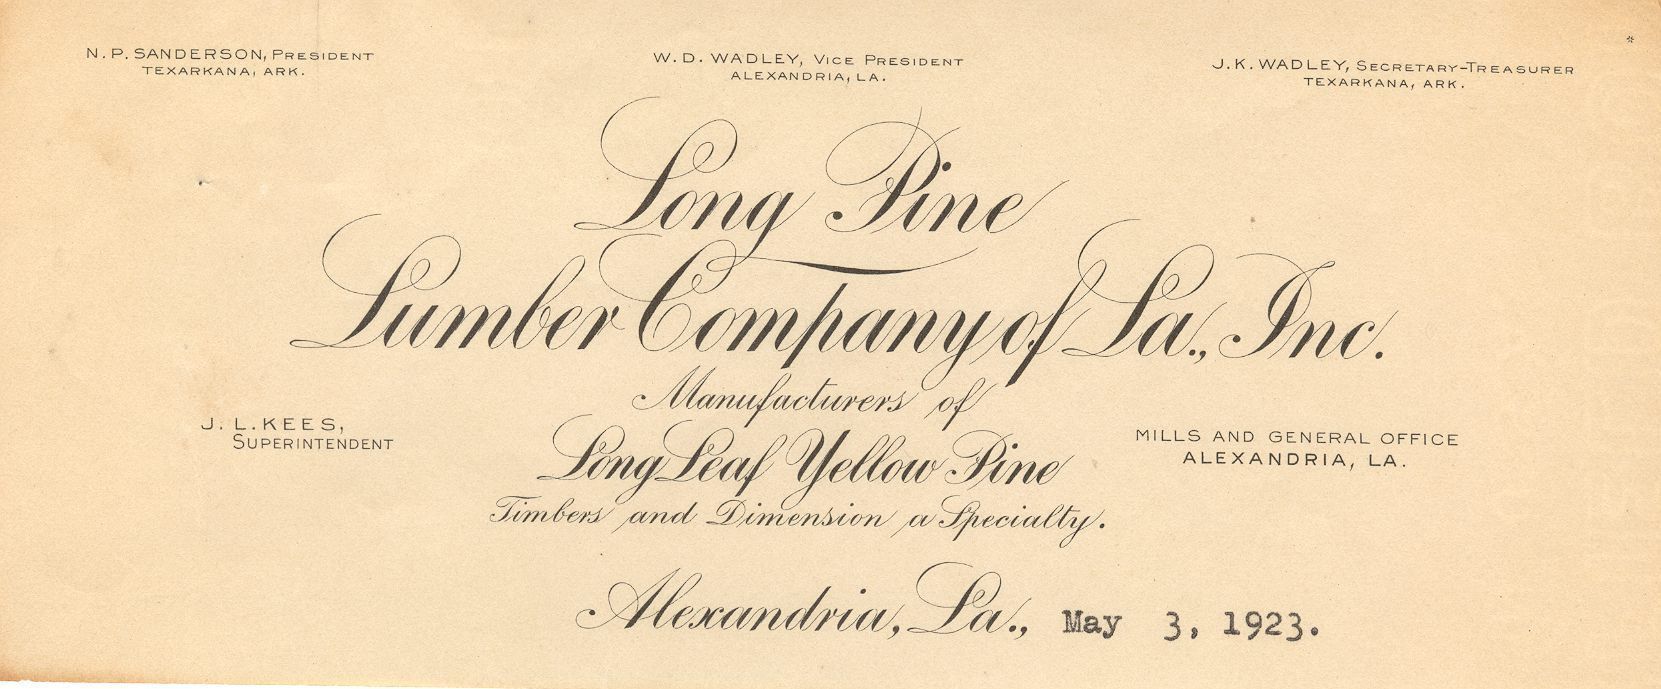 N. P. SANDERSON, PRESIDENT
TEXARKANA, ARK.
W. D. WADLEY, VICE PRESIDENT
ALEXANDRIA, LA.
J. K. WADLEY, SECRETARY-TREASURER
TEXARKANA, ARK.
Long Pine
Lumber Company of La., Inc.
Manufacturers of
Long Leaf Yellow Pine
Timbers and Dimension a Specialty.
J. L. KEES,
SUPERINTENDENT
MILLS AND GENERAL OFFICE
ALEXANDRIA, LA.
Alexandria, La., May 3, 1923.